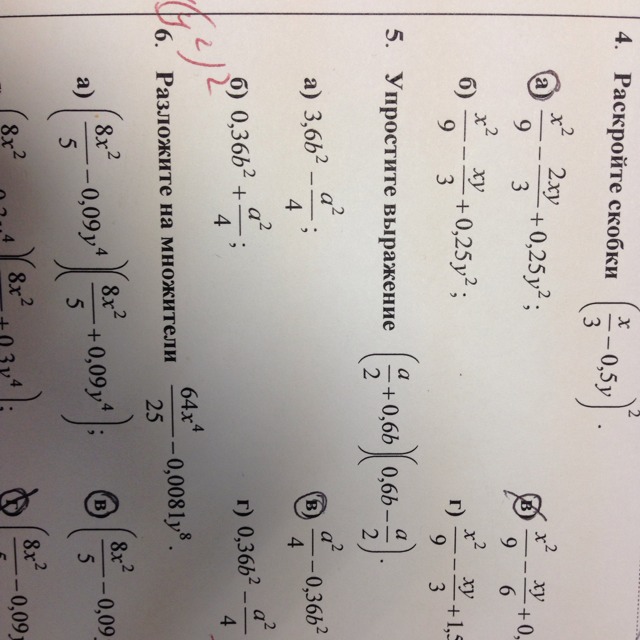 4. Раскройте скобки (x/3 − 0,5y)².
а) x²/9 − 2xy/3 + 0,25y²;
в) x²/9 − xy/6 + 0,
б) x²/9 − xy/3 + 0,25y²;
г) x²/9 − xy/3 + 1,5
5. Упростите выражение (a/2 + 0,6b)(0,6b − a/2).
а) 3,6b² − a²/4;
в) a²/4 − 0,36b²
б) 0,36b² + a²/4;
г) 0,36b² − a²/4
6. Разложите на множители 64x⁴/25 − 0,0081y⁸.
а) (8x²/5 − 0,09y⁴)(8x²/5 + 0,09y⁴);
в) (8x²/5 − 0,09
(8x² 0,3y⁴)(8x² + 0,3y⁴);
(8x² − 0,09